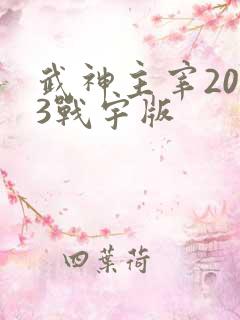 武神主宰20
3戰宇版
四葉荷